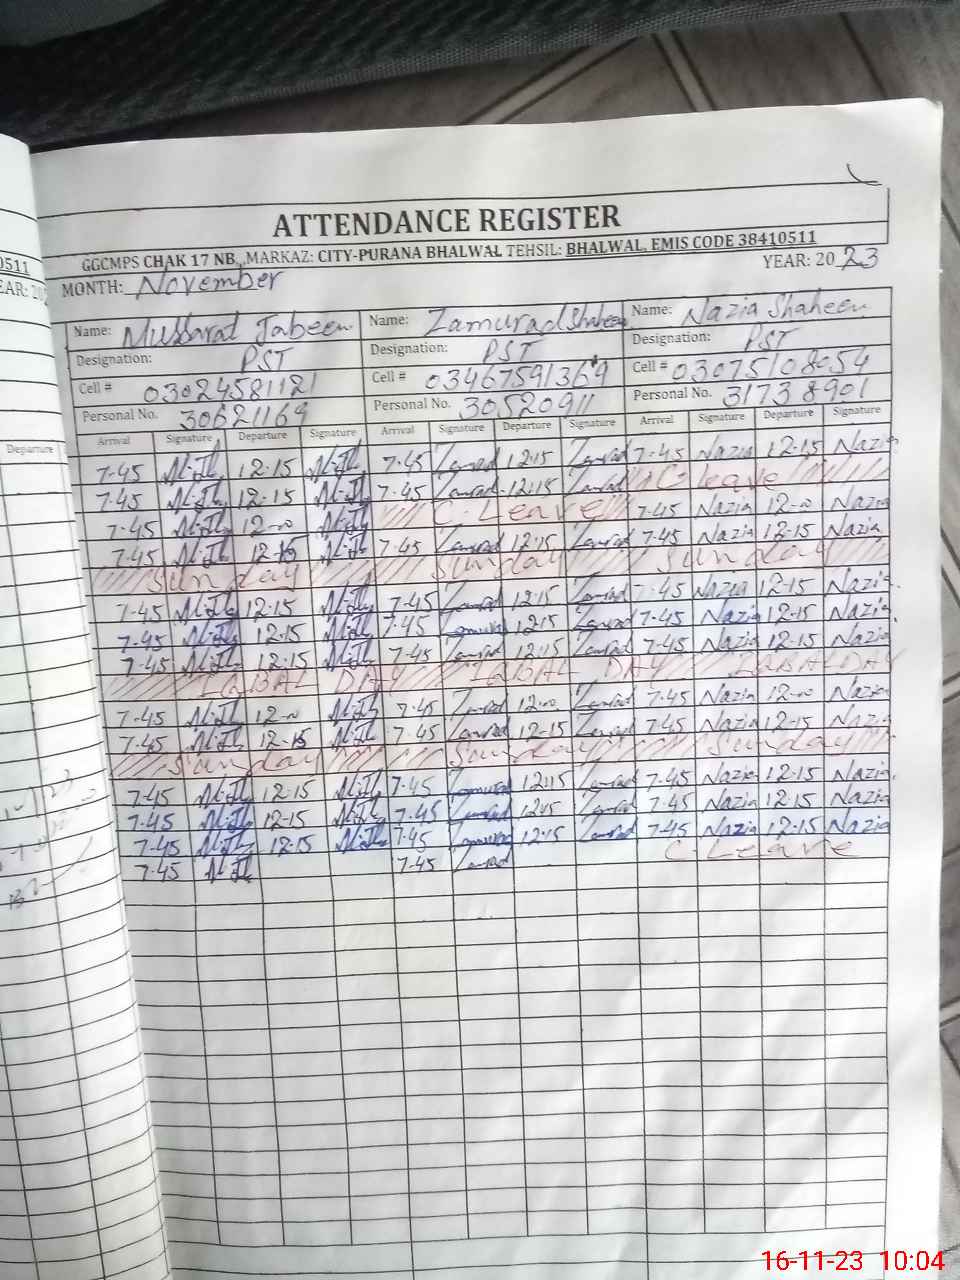 ATTENDANCE REGISTER
GGCMPS CHAK 17 NB, MARKAZ: CITY-PURANA BHALWAL TEHSIL: BHALWAL, EMIS CODE 38410511
0511
MONTH: November YEAR: 2023
Name: Mussarat Jabeen Name: Zamurad Shaheen Name: Nazia Shaheen
Designation: PST Designation: PST Designation: PST
Cell # 03024581121 Cell # 03467591369 Cell # 03075108054
Personal No. 30621169 Personal No. 30520911 Personal No. 31738901
Departure Arrival Signature Departure Signature Arrival Signature Departure Signature Arrival Signature Departure Signature
7-45 12-15 7-45 Zamrad 12-15 Zamrad 7-45 Nazia 12-15 Nazia
7-45 12-15 7-45 Zamrad 12-15 Zamrad C-leave
7-45 12-00 C-Leave 7-45 Nazia 12-00 Nazia
7-45 12-15 7-45 Zamrad 12-15 Zamrad 7-45 Nazia 12-15 Nazia
Sunday Sunday Sunday
7-45 12-15 7-45 Zamrad 12-15 Zamrad 7-45 Nazia 12-15 Nazia
7-45 12-15 7-45 Zamurad 12-15 Zamrad 7-45 Nazia 12-15 Nazia
7-45 12-15 7-45 Zamrad 12-15 Zamrad 7-45 Nazia 12-15 Nazia
IQBAL DAY IQBAL DAY IQBAL DAY
7-45 12-00 7-45 Zamrad 12-00 Zamrad 7-45 Nazia 12-00 Nazia
7-45 12-15 7-45 Zamrad 12-15 Zamrad 7-45 Nazia 12-15 Nazia
Sunday Sunday Sunday
7-45 12-15 7-45 Zamurad 12-15 Zamrad 7-45 Nazia 12-15 Nazia
7-45 12-15 7-45 Zamrad 12-15 Zamrad 7-45 Nazia 12-15 Nazia
7-45 12-15 7-45 Zamurad 12-15 Zamrad 7-45 Nazia 12-15 Nazia
7-45 7-45 Zamrad C-Leave
16-11-23 10:04